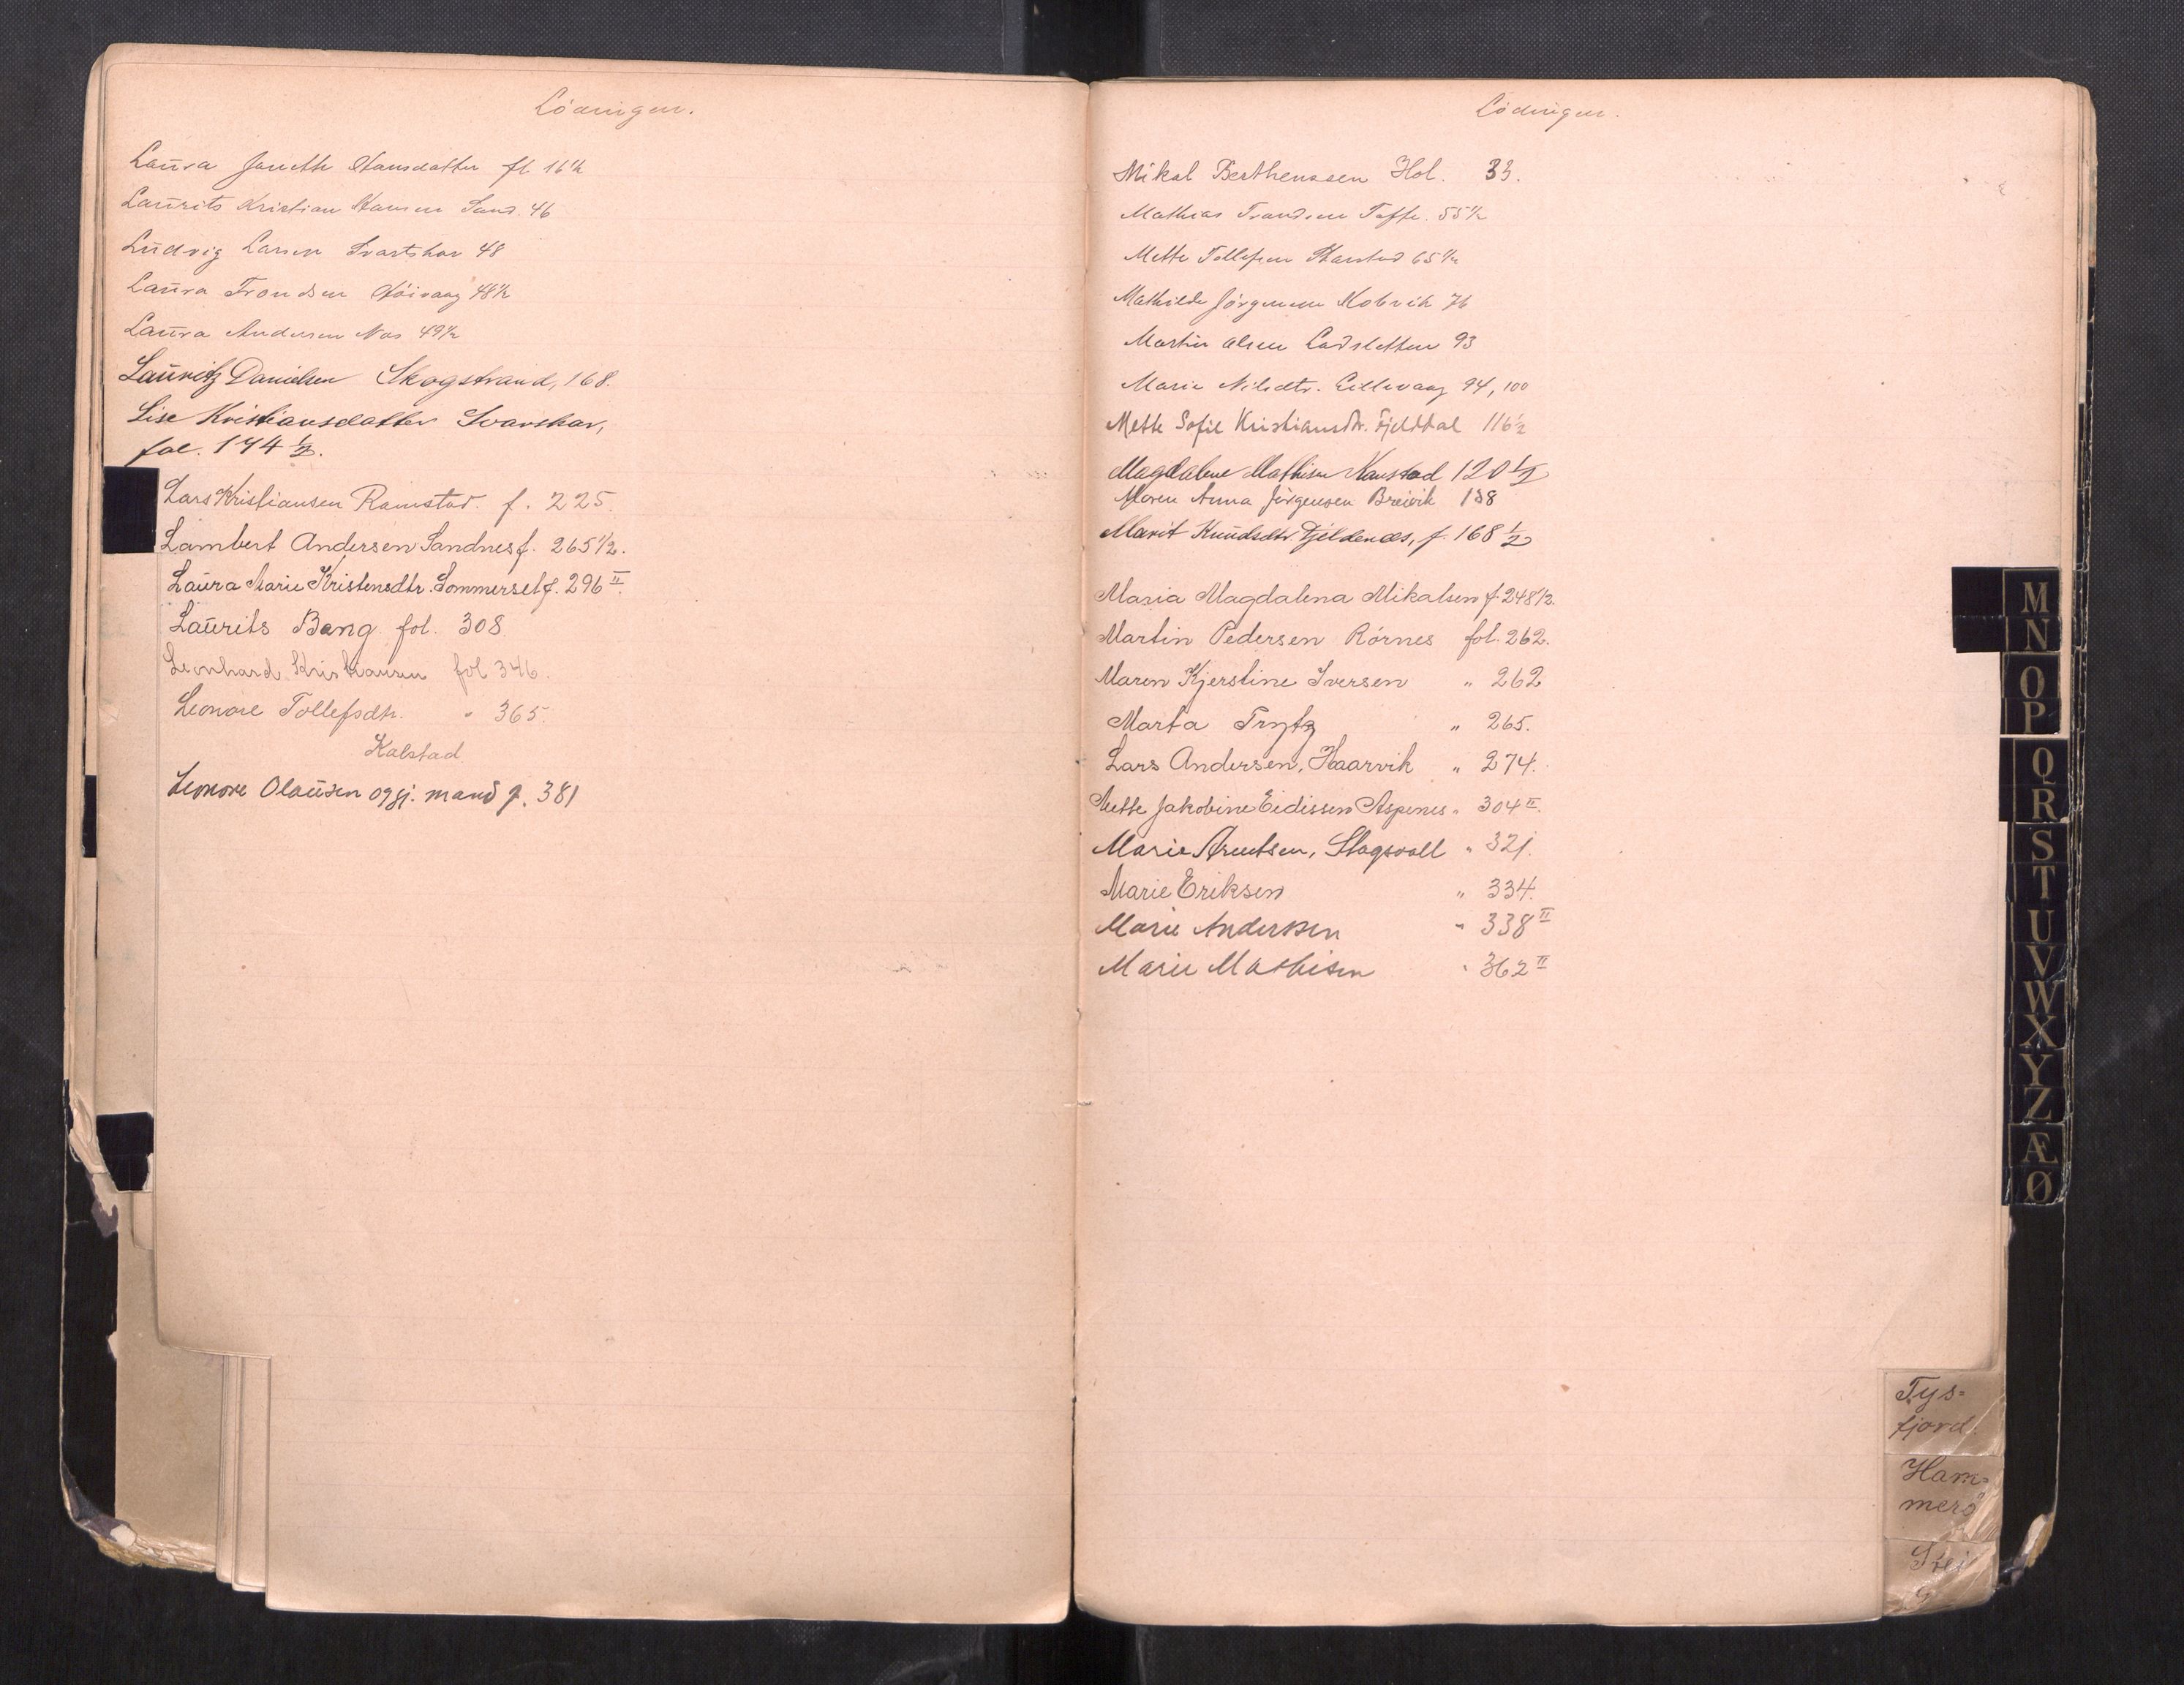 Lödingen.
Laura Janette Hansdatter fl 16 1/2
Laurits Kristian Hansen Sand. 46
Ludvig Larsen Svartskar 48
Laura Trondsen 48 1/2
Laura Andersen Nes 49 1/2
Lauritz Danielsen Skogstrand, 168.
Lise Kristiansdatter Svarskar,
fol. 174 1/2.
Lars Kristiansen Ramstad. f. 225.
Lambert Andersen Sandnes f. 265 1/2.
Laura Marie Kristensdtr. Sommerset f. 296 II.
Laurits Bang fol. 308
Leonhard Kristiansen fol 346.
Leonore Tollefsdtr. " 365.
Kalstad
Leonore Olausen og gj. mand f. 381
Lödingen.
Mikal Berthenssen Hol. 33.
Mathias Trondsen Tofte. 55 1/2
Mette Tollefsen Harstad 65 1/2
Mathilde Jörgensen Kobvik 76
Martin Olsen Ladsletten 93
Marie Nilsdtr. 94, 100
Mette Sofie Kristiansdtr. Fjelddal 116 1/2
Magdalene Mathisen Kanstad 120 1/2
Maren Anna Jörgensen Breivik 138
Marit Knudsdtr. Tjeldenes, f. 168 1/2
Maria Magdalena Mikalsen f. 248 1/2.
Martin Pedersen Rörnes fol. 262.
Maren Kjerstine Iversen " 262
Marta Trytz " 265.
Lars Andersen, Haarvik " 274.
Mette Jakobine Eidissen Aspenes " 304 II.
Marie Arentsen, Stagsvoll " 321.
Marie Eriksen " 334.
Marie Anderssen " 338 II
Marie Mathisen " 362 II
M
N
O
P
Q
R
S
T
U
V
W
X
Y
Z
Æ
Ø
Tys-
fjord.
Ham-
merö